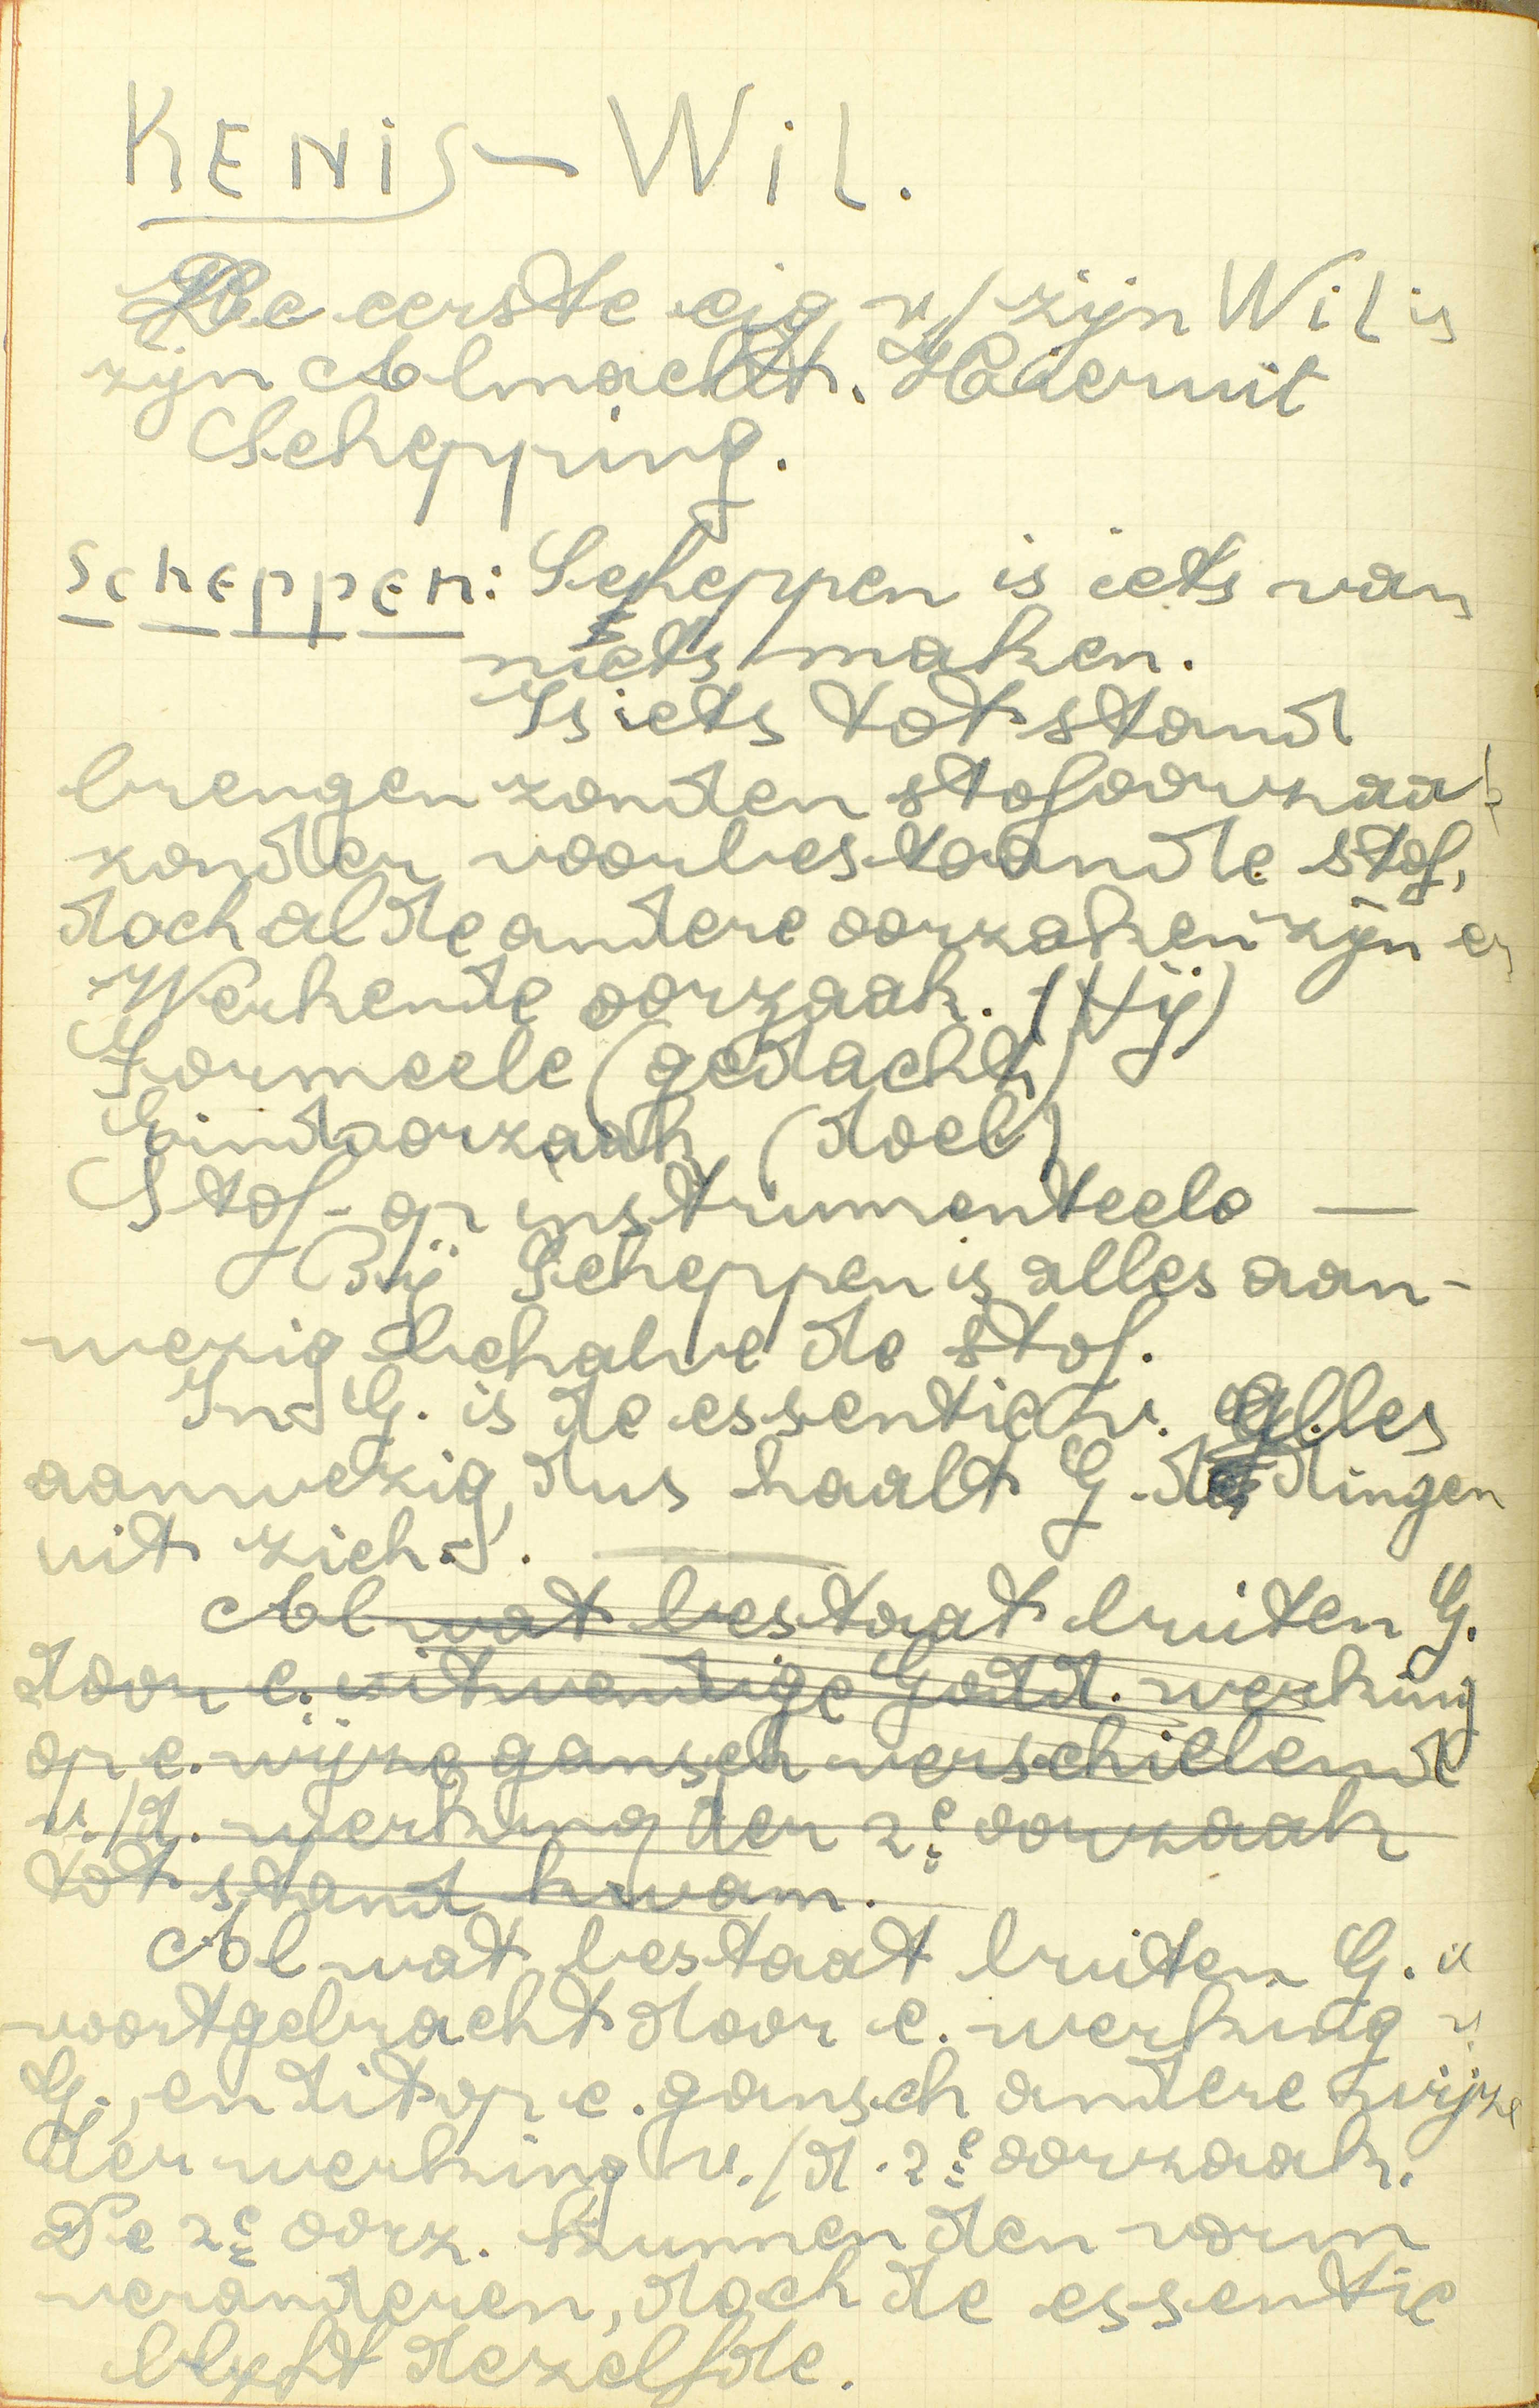 KENIS - Wil.
De eerste eig v/ zijn Wil is
zijn Almacht. Hieruit
Schepping.
Scheppen: Scheppen is iets van
niets maken.
Is iets tot stand
brengen zonder stofoorzaak
zonder voorbestaande stof,
doch al de andere oorzaken zijn er
Werkende oorzaak. (Hij)
Formeele (gedacht)
Eindoorzaak (doel)
Stof- op instrumenteele —
Bij Scheppen is alles aan-
wezig behalve de stof.
In G. is de essentie v. alles
aanwezig, dus haalt G. de dingen
uit zich.
Al wat bestaat buiten G.
door e. uitwendige Godd. werking
op e. wijze gansch verschillend
v./d. werking der 2e oorzaak
tot stand kwam.
Al wat bestaat buiten G. is
voortgebracht door e. werking v.
G., en dit op e. gansch andere wijze
der werking v./d. 2e oorzaak.
De 2e oorz. kunnen den vorm
veranderen, doch de essentie
blyft dezelfde.